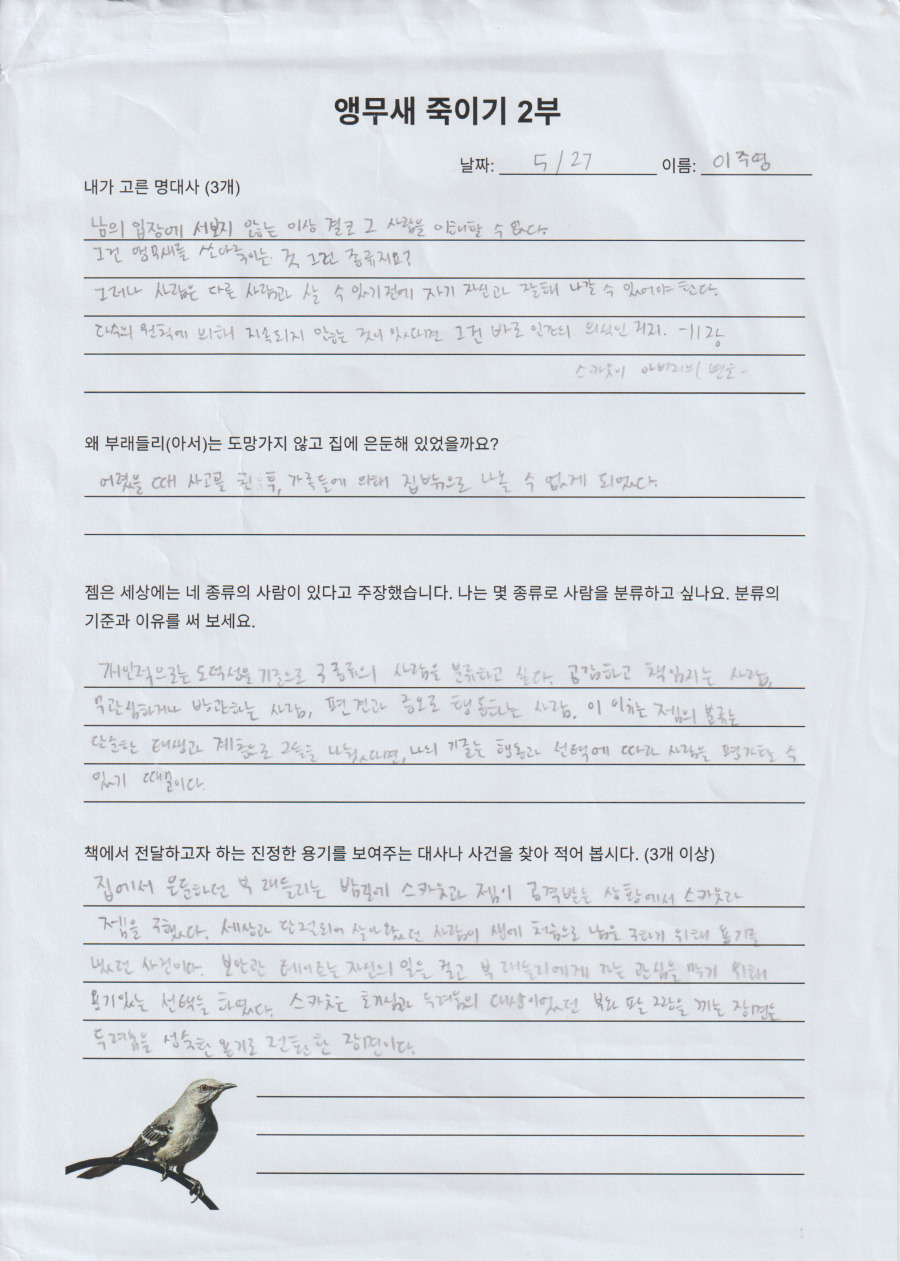 앵무새 죽이기 2부
날짜: 5/27 이름: 이주영
내가 고른 명대사 (3개)
남의 입장에 서보지 않는 이상 결코 그 사람을 이해할 수 없다.
그건 앵무새를 쏘아죽이는 것 그런 종류지요?
그러나 사람은 다른 사람과 살 수 있기전에 자기 자신과 잘해 나갈 수 있어야 한다.
다수의 원칙에 의해 지속되지 않는 것이 있다면 그건 바로 인간의 의식인 거지. -11장
스카웃이 아버지의
왜 부래들리(아서)는 도망가지 않고 집에 은둔해 있었을까요?
어렸을 때 사고를 친 후, 가족들에 의해 집밖으로 나올 수 없게 되었다.
젬은 세상에는 네 종류의 사람이 있다고 주장했습니다. 나는 몇 종류로 사람을 분류하고 싶나요. 분류의
기준과 이유를 써 보세요.
개인적으로는 도덕성을 기준으로 3종류의 사람을 분류하고 싶다. 공감하고 책임지는 사람,
무관심하거나 방관하는 사람, 편견과 증오로 행동하는 사람. 이 이유는 젬의 분류는
단순한 태생과 계층으로 그들을 나눴다면, 나의 기준은 행동과 선택에 따라 사람을 평가할 수
있기 때문이다.
책에서 전달하고자 하는 진정한 용기를 보여주는 대사나 사건을 찾아 적어 봅시다. (3개 이상)
집에서 은둔하던 부 래들리는 밤길에 스카웃과 젬이 공격받는 상황에서 스카웃과
젬을 구했다. 세상과 단절되어 살아왔던 사람이 생에 처음으로 남을 구하기 위해 용기를
냈던 사건이다. 보안관 테이트는 자신의 일을 걸고 부 래들리에게 가는 관심을 막기 위해
용기있는 선택을 하였다. 스카웃은 호기심과 두려움의 대상이었던 부와 팔짱을 끼는 장면은
두려움을 성숙한 용기로 전환한 장면이다.